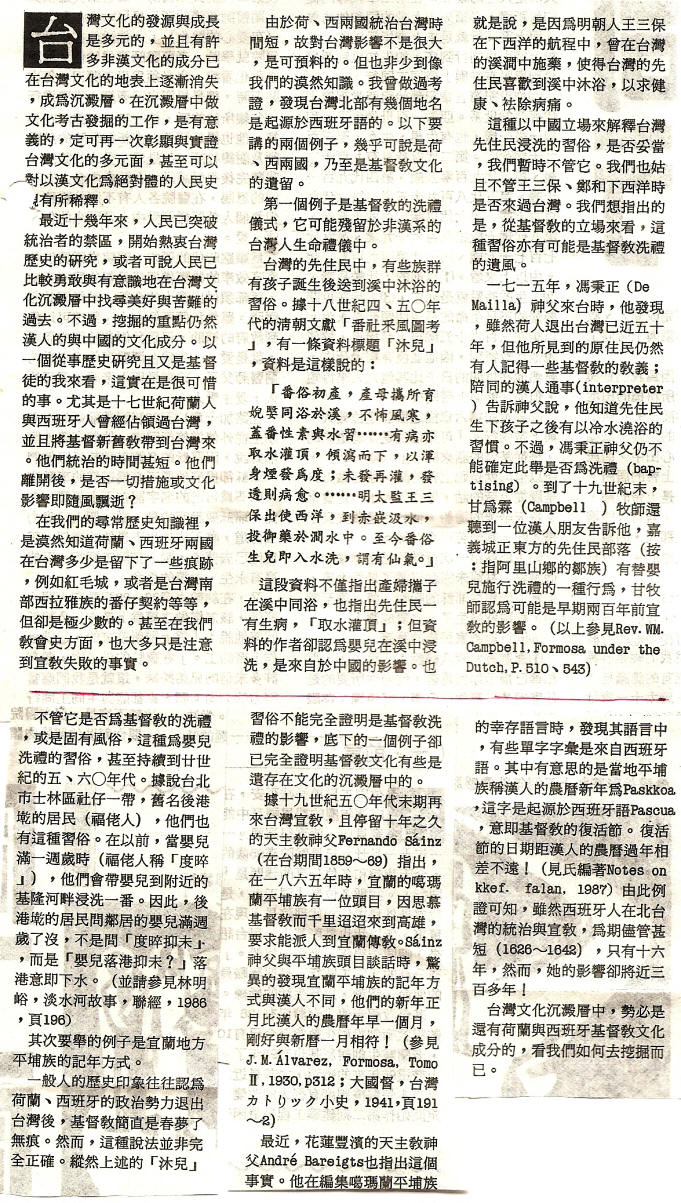 台灣文化的發源與成長
是多元的，並且有許
多非漢文化的成分已
在台灣文化的地表上逐漸消失
，成爲沉澱層。在沉澱層中做
文化考古發掘的工作，是有意
義的，定可再一次彰顯與實證
台灣文化的多元面，甚至可以
對以漢文化爲絕對體的人民史
有所稀釋。
最近十幾年來，人民已突破
統治者的禁區，開始熱衷台灣
歷史的研究，或者可說人民已
比較勇敢與有意識地在台灣文
化沉澱層中找尋美好與苦難的
過去。不過，挖掘的重點仍然
漢人的與中國的文化成分。以
一個從事歷史研究且又是基督
徒的我來看，這實在是很可惜
的事。尤其是十七世紀荷蘭人
與西班牙人曾經佔領過台灣，
並且將基督新舊敎帶到台灣來
。他們統治的時間甚短。他們
離開後，是否一切措施或文化
影響卽隨風飄逝？
在我們的尋常歷史知識裡，
是漠然知道荷蘭、西班牙兩國
在台灣多少是留下了一些痕跡
，例如紅毛城，或者是台灣南
部西拉雅族的番仔契約等等，
但卻是極少數的。甚至在我們
敎會史方面，也大多只是注意
到宣敎失敗的事實。
由於荷、西兩國統治台灣時
間短，故對台灣影響不是很大
，是可預料的。但也非少到像
我們的漠然知識。我曾做過考
證，發現台灣北部有幾個地名
是起源於西班牙語的。以下要
講的兩個例子，幾乎可說是荷
、西兩國，乃至是基督敎文化
的遺留。
第一個例子是基督敎的洗禮
儀式，它可能殘留於非漢系的
台灣人生命禮儀中。
台灣的先住民中，有些族群
有孩子誕生後送到溪中沐浴的
習俗。據十八世紀四、五〇年
代的清朝文獻「番社釆風圖考
」，有一條資料標題「沐兒」
，資料是這樣說的：
「番俗初產，產母攜所育
婗嫛同浴於溪，不怖風寒，
蓋番性素與水習⋯⋯有病亦
取水灌頂，傾瀉而下，以渾
身煙發爲度；未發再灌，發
透則病愈。⋯⋯明太監王三
保出使西洋，到赤嵌汲水，
投御藥於澗水中。至今番俗
生兒卽入水洗，謂有仙氣。」
這段資料不僅指出產婦攜子
在溪中同浴，也指出先住民一
有生病，「取水灌頂」；但資
料的作者卻認爲嬰兒在溪中浸
洗，是來自於中國的影響。也
就是說，是因爲明朝人王三保
在下西洋的航程中，曾在台灣
的溪澗中施藥，使得台灣的先
住民喜歡到溪中沐浴，以求健
康、祛除病痛。
這種以中國立場來解釋台灣
先住民浸洗的習俗，是否妥當
，我們暫時不管它。我們也姑
且不管王三保、鄭和下西洋時
是否來過台灣。我們想指出的
是，從基督敎的立場來看，這
種習俗亦有可能是基督敎洗禮
的遺風。
一七一五年，馮秉正（De
Mailla）神父來台時，他發現
，雖然荷人退出台灣已近五十
年，但他所見到的原住民仍然
有人記得一些基督敎的敎義；
陪同的漢人通事(interpreter
）告訴神父說，他知道先住民
生下孩子之後有以冷水澆浴的
習慣。不過，馮秉正神父仍不
能確定此舉是否爲洗禮（bap-
tising）。到了十九世紀末，
甘爲霖（Campbell ）牧師還
聽到一位漢人朋友告訴他，嘉
義城正東方的先住民部落（按
：指阿里山鄉的鄒族）有替嬰
兒施行洗禮的一種行爲，甘牧
師認爲可能是早期兩百年前宣
敎的影響。（以上參見Rev. WM.
Campbell, Formosa under the
Dutch, P. 510、543）
不管它是否爲基督敎的洗禮
，或是固有風俗，這種爲嬰兒
洗禮的習俗，甚至持續到廿世
紀的五、六〇年代。據說台北
市士林區社仔一帶，舊名後港
墘的居民（福佬人），他們也
有這種習俗。在以前，當嬰兒
滿一週歲時（福佬人稱「度晬
」），他們會帶嬰兒到附近的
基隆河畔浸洗一番。因此，後
港墘的居民問鄰居的嬰兒滿週
歲了沒，不是問「度晬抑未」
，而是「嬰兒落港抑未？」落
港意卽下水。（並請參見林明
峪，淡水河故事，聯經，1986
，頁196）
其次要舉的例子是宜蘭地方
平埔族的記年方式。
一般人的歷史印象往往認爲
荷蘭、西班牙的政治勢力退出
台灣後，基督敎簡直是春夢了
無痕。然而，這種說法並非完
全正確。縱然上述的「沐兒」
習俗不能完全證明是基督敎洗
禮的影響，底下的一個例子卻
已完全證明基督敎文化有些是
遺存在文化的沉澱層中的。
據十九世紀五〇年代末期再
來台灣宣敎，且停留十年之久
的天主敎神父Fernando Sáinz
（在台期間1859～69）指出，
在一八六五年時，宜蘭的噶瑪
蘭平埔族有一位頭目，因思慕
基督敎而千里迢迢來到高雄，
要求能派人到宜蘭傳敎。Sáinz
神父與平埔族頭目談話時，驚
異的發現宜蘭平埔族的記年方
式與漢人不同，他們的新年正
月比漢人的農曆年早一個月，
剛好與新曆一月相符！（參見
J. M. Álvarez, Formosa, Tomo
Ⅱ, 1930, p312；大國督，台灣
カトリック小史，1941，頁191
～2）
最近，花蓮豐濱的天主敎神
父André Bareigts也指出這個
事實。他在編集噶瑪蘭平埔族
的幸存語言時，發現其語言中
，有些單字字彙是來自西班牙
語。其中有意思的是當地平埔
族稱漢人的農曆新年爲Paskkoa
，這字是起源於西班牙語Pascua
，意卽基督敎的復活節。復活
節的日期距漢人的農曆過年相
差不遠！（見氏編著Notes on
kkef. falan, 1987) 由此例
證可知，雖然西班牙人在北台
灣的統治與宣敎，爲期儘管甚
短（1626～1642），只有十六
年，然而，她的影響卻將近三
百多年！
台灣文化沉澱層中，勢必是
還有荷蘭與西班牙基督敎文化
成分的，看我們如何去挖掘而
已。